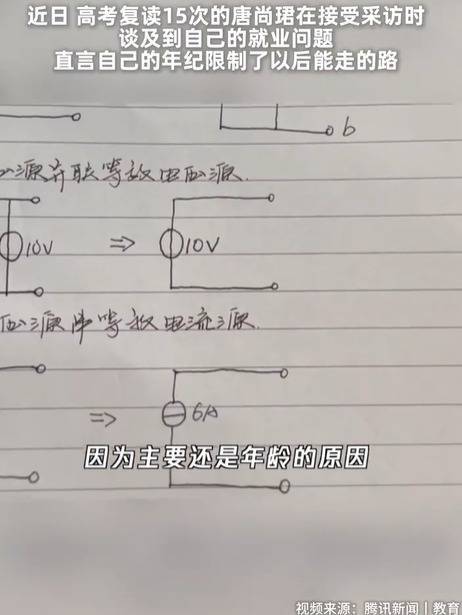 近日 高考复读15次的唐尚珺在接受采访时
谈及到自己的就业问题
直言自己的年纪限制了以后能走的路
b
源并联等效电压源.
10V ⇒ 10V
压源串等效电流源.
⇒ 6A
因为主要还是年龄的原因
视频来源：腾讯新闻丨教育